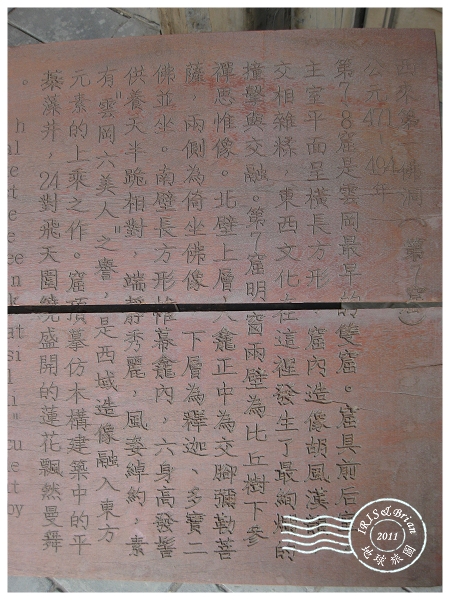 佛洞（第7窟）
公元471-494年
第7、8窟是雲岡最早的雙窟。窟具前后室
主室平面呈橫長方形，窟內造像胡風漢
交相雜糅，東西文化在這裡發生了最絢爛的
撞擊與交融。第7窟明窗兩壁為比丘樹下參
禪思惟像。北壁上層八龕正中為交腳彌勒菩
薩，兩側為倚坐佛像，下層為釋迦、多寶二
佛並坐。南壁長方形帷幕龕內，六身高發髻
供養天半跪相對，端靜秀麗，風姿綽約，素
有"雲岡六美人"之譽，是西域造像融入東方
元素的上乘之作。窟頂摹仿木構建築中的平
棊藻井，24對飛天圍繞盛開的蓮花飄然曼舞
。
IRIS & Brian
2011
地球旅圖